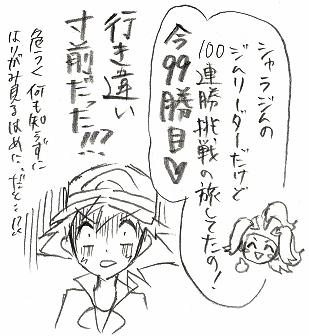 シャラジムの
ジムリーダーだけど
100連勝挑戦の旅してたの！
今99勝目♡
行き違い
寸前だった!!!
危うく何も知らずに
はりがみ見るはめに…だと…!?